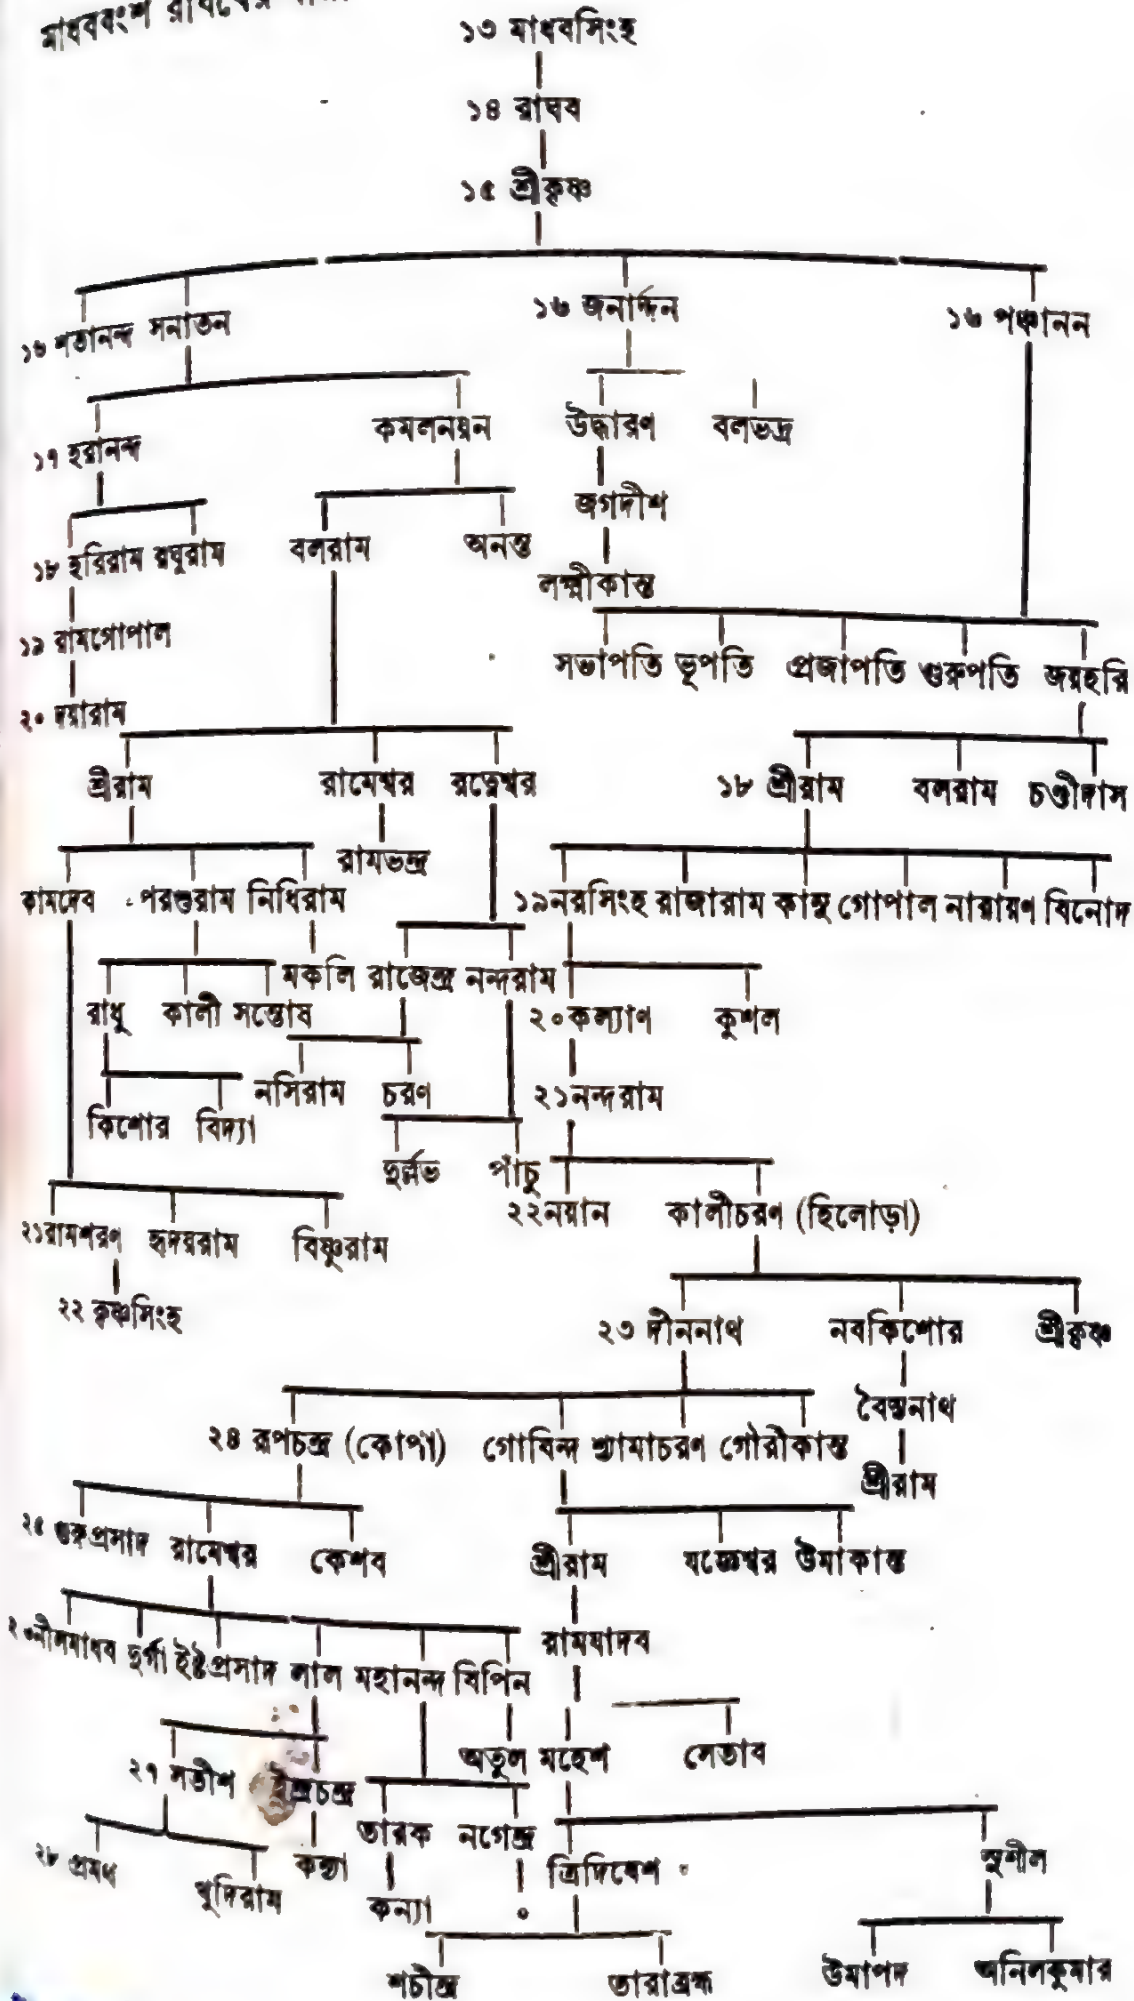 মাধববংশ রাঘবের
১৩ মাধবসিংহ
১৪ রাঘব
১৫ শ্রীকৃষ্ণ
১৬ শতানন্দ সনাতন ১৬ জনার্দ্দন ১৬ পঞ্চানন
১৭ হরানন্দ কমলনয়ন উদ্ধারণ বলভদ্র
জগদীশ
১৮ হরিরাম রঘুরাম বলরাম অনন্ত
লক্ষ্মীকান্ত
১৯ রামগোপাল
সভাপতি ভূপতি প্রজাপতি গুরুপতি জয়হরি
২০ দয়ারাম
শ্রীরাম রামেশ্বর রত্নেশ্বর ১৮ শ্রীরাম বলরাম চণ্ডীদাস
রামভদ্র
কামদেব পরশুরাম নিধিরাম ১৯নরসিংহ রাজারাম কানু গোপাল নারায়ণ বিনোদ
মকলি রাজেন্দ্র নন্দরাম
রাধু কালী সন্তোষ ২০কল্যাণ কুশল
নসিরাম চরণ ২১নন্দরাম
কিশোর বিদ্যা
দুর্ল্লভ পাঁচু
২২নয়ান কালীচরণ (হিলোড়া)
২১রামশরণ হৃদয়রাম বিষ্ণুরাম
২২ কৃষ্ণসিংহ
২৩ দীননাথ নবকিশোর শ্রীকৃষ্ণ
বৈদ্যনাথ
২৪ রূপচন্দ্র (কোপা) গোবিন্দ শ্যামাচরণ গৌরীকান্ত
শ্রীরাম
২৫ গুরুপ্রসাদ রামেশ্বর কেশব শ্রীরাম যজ্ঞেশ্বর উমাকান্ত
রামযাদব
২৬নীলমাধব দুর্গা ইষ্টপ্রসাদ লাল মহানন্দ বিপিন
অতুল মহেশ সেতাব
২৭ সতীশ ইন্দ্রচন্দ্র
তারক নগেন্দ্র
২৮ প্রমথ ক্ষুদিরাম কন্যা ত্রিদিবেশ সুশীল
কন্যা ০
শচীন্দ্র তারাব্রহ্ম উমাপদ অনিলকুমার